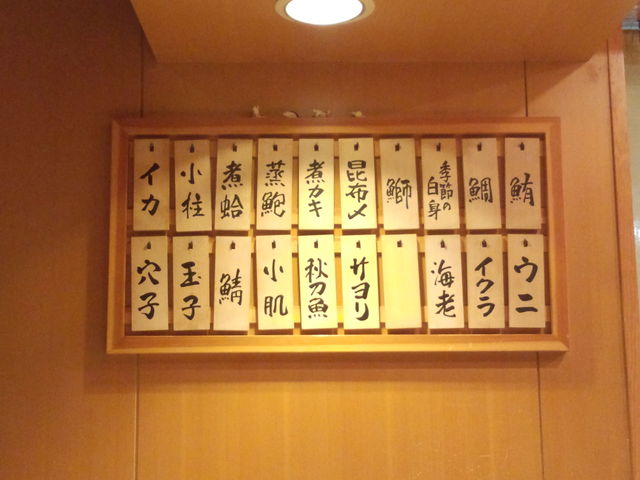 鮪
鯛
季節の白身
鰤
昆布〆
煮カキ
蒸鮑
煮蛤
小柱
イカ
ウニ
イクラ
海老
サヨリ
秋刀魚
小肌
鯖
玉子
穴子